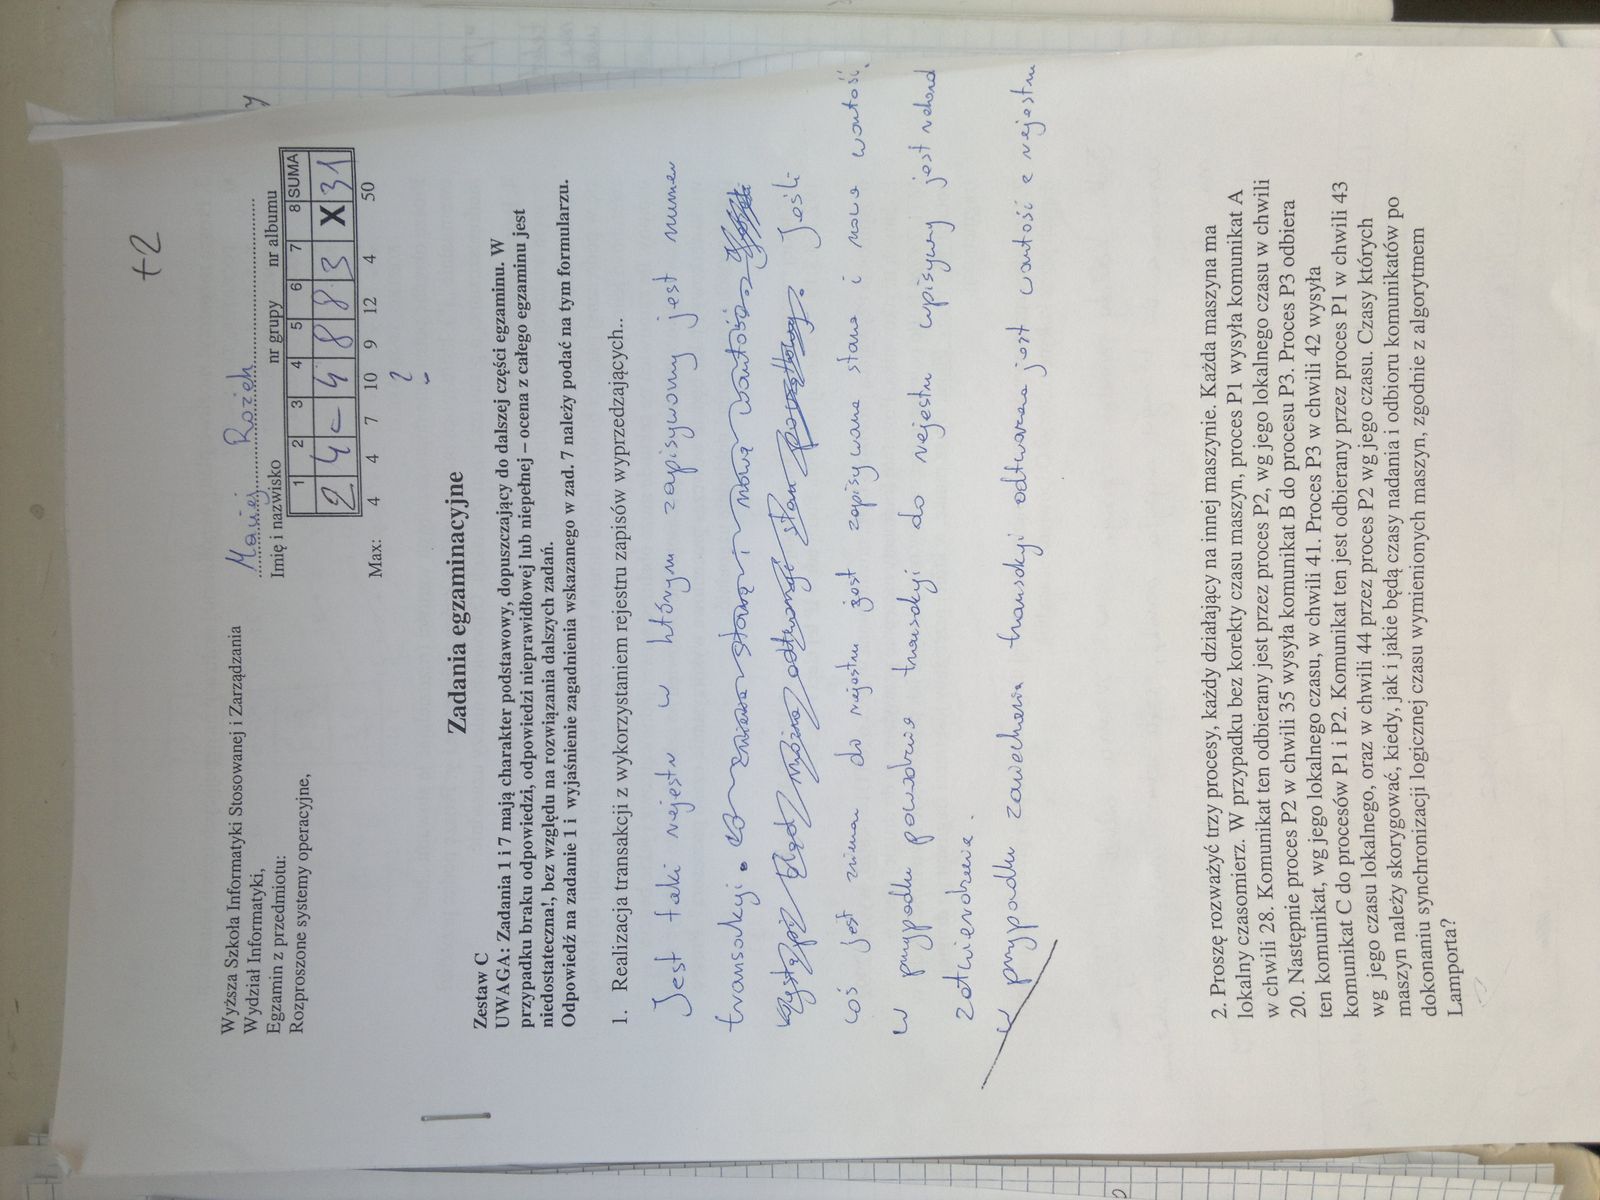 +2
Wyższa Szkoła Informatyki Stosowanej i Zarządzania
Wydział Informatyki,
Egzamin z przedmiotu:
Rozproszone systemy operacyjne,
Maciej Rożek
Imię i nazwisko nr grupy nr albumu
1 2 3 4 5 6 7 8 SUMA
2 4 – 4 8 8 3 X 31
Max: 4 4 7 10 9 12 4 50
?
Zadania egzaminacyjne
Zestaw C
UWAGA: Zadania 1 i 7 mają charakter podstawowy, dopuszczający do dalszej części egzaminu. W
przypadku braku odpowiedzi, odpowiedzi nieprawidłowej lub niepełnej – ocena z całego egzaminu jest
niedostateczna!, bez względu na rozwiązania dalszych zadań.
Odpowiedź na zadanie 1 i wyjaśnienie zagadnienia wskazanego w zad. 7 należy podać na tym formularzu.
1. Realizacja transakcji z wykorzystaniem rejestru zapisów wyprzedzających..
Jest taki rejestr w którym zapisywany jest numer
transakcji. co zmienia starą i nową wartość
wystąpi błąd można odtworzyć stan początkowy. Jeśli
coś jest zmien do rejestru jest zapisywana stara i nowa wartość.
w przypadku powodzenia transakcji do rejestru wpisywany jest rekord
zatwierdzenia.
w przypadku zaniechania transakcji odtwarzana jest wartość z rejestru
2. Proszę rozważyć trzy procesy, każdy działający na innej maszynie. Każda maszyna ma
lokalny czasomierz. W przypadku bez korekty czasu maszyn, proces P1 wysyła komunikat A
w chwili 28. Komunikat ten odbierany jest przez proces P2, wg jego lokalnego czasu w chwili
20. Następnie proces P2 w chwili 35 wysyła komunikat B do procesu P3. Proces P3 odbiera
ten komunikat, wg jego lokalnego czasu, w chwili 41. Proces P3 w chwili 42 wysyła
komunikat C do procesów P1 i P2. Komunikat ten jest odbierany przez proces P1 w chwili 43
wg jego czasu lokalnego, oraz w chwili 44 przez proces P2 wg jego czasu. Czasy których
maszyn należy skorygować, kiedy, jak i jakie będą czasy nadania i odbioru komunikatów po
dokonaniu synchronizacji logicznej czasu wymienionych maszyn, zgodnie z algorytmem
Lamporta?